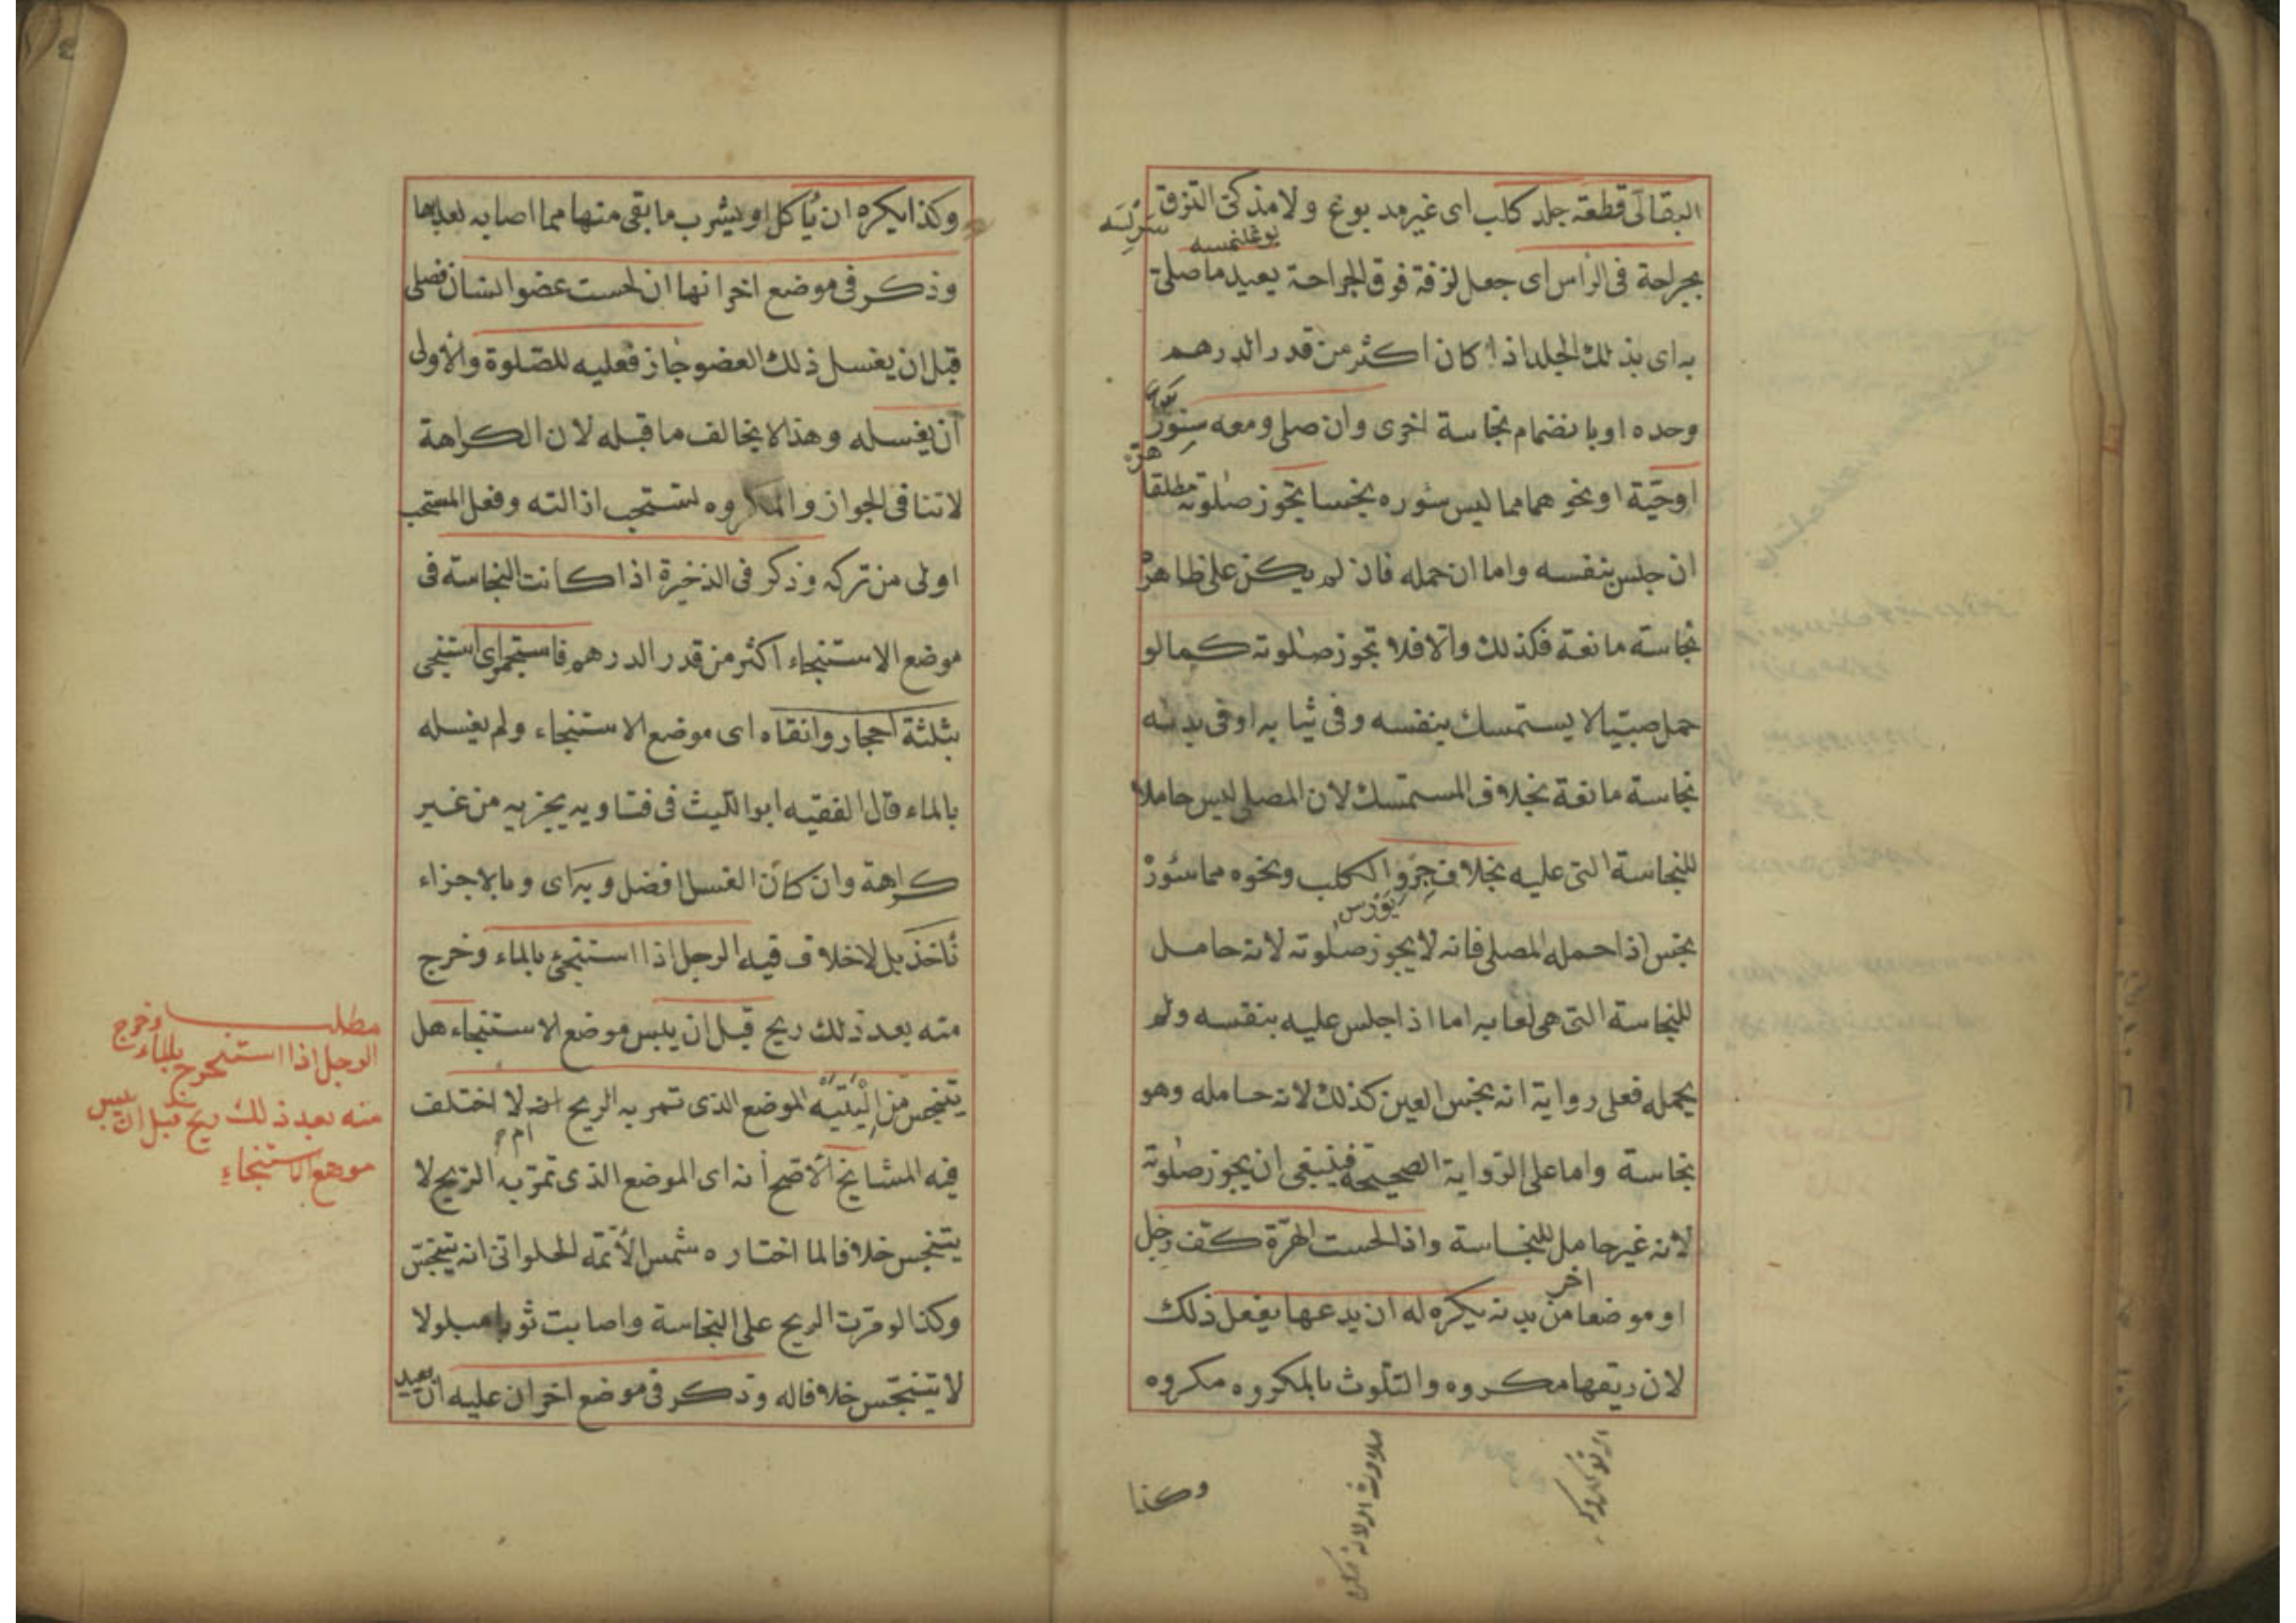 البقالى قطعة جلد كلب اى غير مدبوغ ولا مذكى التزق
بجراحة فى الرأس اى جعل لزقة فوق الجراحة يعيد ما صلى
به اى بذلك الجلد اذا كان اكثر من قدر الدرهم
وحده او بانضمام نجاسة اخرى وان صلى ومعه سنور
هرّة
اوحيّة او نحوهما مما ليس سئوره نجسا تجوز صلوته مطلقا
ان جلس بنفسه واما ان حمله فان لم يكن على ظاهره
نجاسة مانعة فكذلك والا فلا تجوز صلوته كما لو
حمل صبيّا لا يستمسك بنفسه وفى ثيابه او فى بدنه
نجاسة مانعة بخلاف المستمسك لان المصلى ليس حاملا
للنجاسة التى عليه بخلاف جرو الكلب ونحوه مما سئوره
نجس اذا حمله المصلى فانه لا يجوز صلوته لانه حامل
للنجاسة التى هى لعابه اما اذا جلس عليه بنفسه ولم
يحمله فعلى رواية انه نجس العين كذلك لانه حامله وهو
نجاسة واما على الرواية الصحيحة فينبغى ان يجوز صلوته
لانه غير حامل للنجاسة واذا لحست الهرّة كفّ رجل
اخر
او موضعا من بدنه يكره له ان يدعها يفعل ذلك
لان ريقها مكروه والتلوث بالمكروه مكروه
وكذا
وكذا يكره ان يأكل او يشرب ما بقى منها مما اصابه لعابها
وذكر فى موضع اخر انها ان لحست عضو انسان فصلى
قبل ان يغسل ذلك العضو جاز فعليه للصّلوة والاولى
ان يغسله وهذا لا يخالف ما قبله لان الكراهة
لا تنافى الجواز والمكروه يستحب ازالته وفعل المستحب
اولى من تركه وذكر فى الذخيرة اذا كانت النجاسة فى
موضع الاستنجاء اكثر من قدر الدرهم فاستجمر اى استنجى
بثلثة احجار وانقاه اى موضع الاستنجاء ولم يغسله
بالماء قال الفقيه ابو الليث فى فتاويه يجزيه من غير
كراهة وان كان الغسل افضل وبه اى وبالاجزاء
نأخذ بل لا خلاف فيه الرجل اذا استنجى بالماء وخرج
منه بعد ذلك ريح قبل ان ييبس موضع الاستنجاء هل
يتنجس من اليتيه الموضع الذى تمر به الريح ام لا اختلف
فيه المشايخ الاصح أنه اى الموضع الذى تمرّ به الريح لا
يتنجس خلافا لما اختاره شمس الأئمّة الحلوانى انه يتنجّس
وكذا لو مرّت الريح على النجاسة واصابت ثوبا مبلولا
لا يتنجّس خلافا له وذكر فى موضع اخر ان عليه ان يعيد
مطلب
الرجل اذا استنجى بالماء وخرج
منه بعد ذلك ريح قبل ان ييبس
موضع الاستنجاء